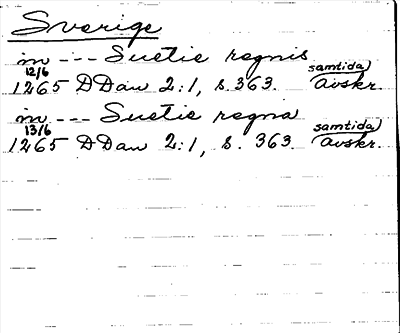 Sverige
in --- Suetie regnis
12/6 samtida)
1265 DDan 2:1, s. 363. avskr.
in --- Suetie regna
13/6 samtida)
1265 DDan 2:1, s. 363. avskr.